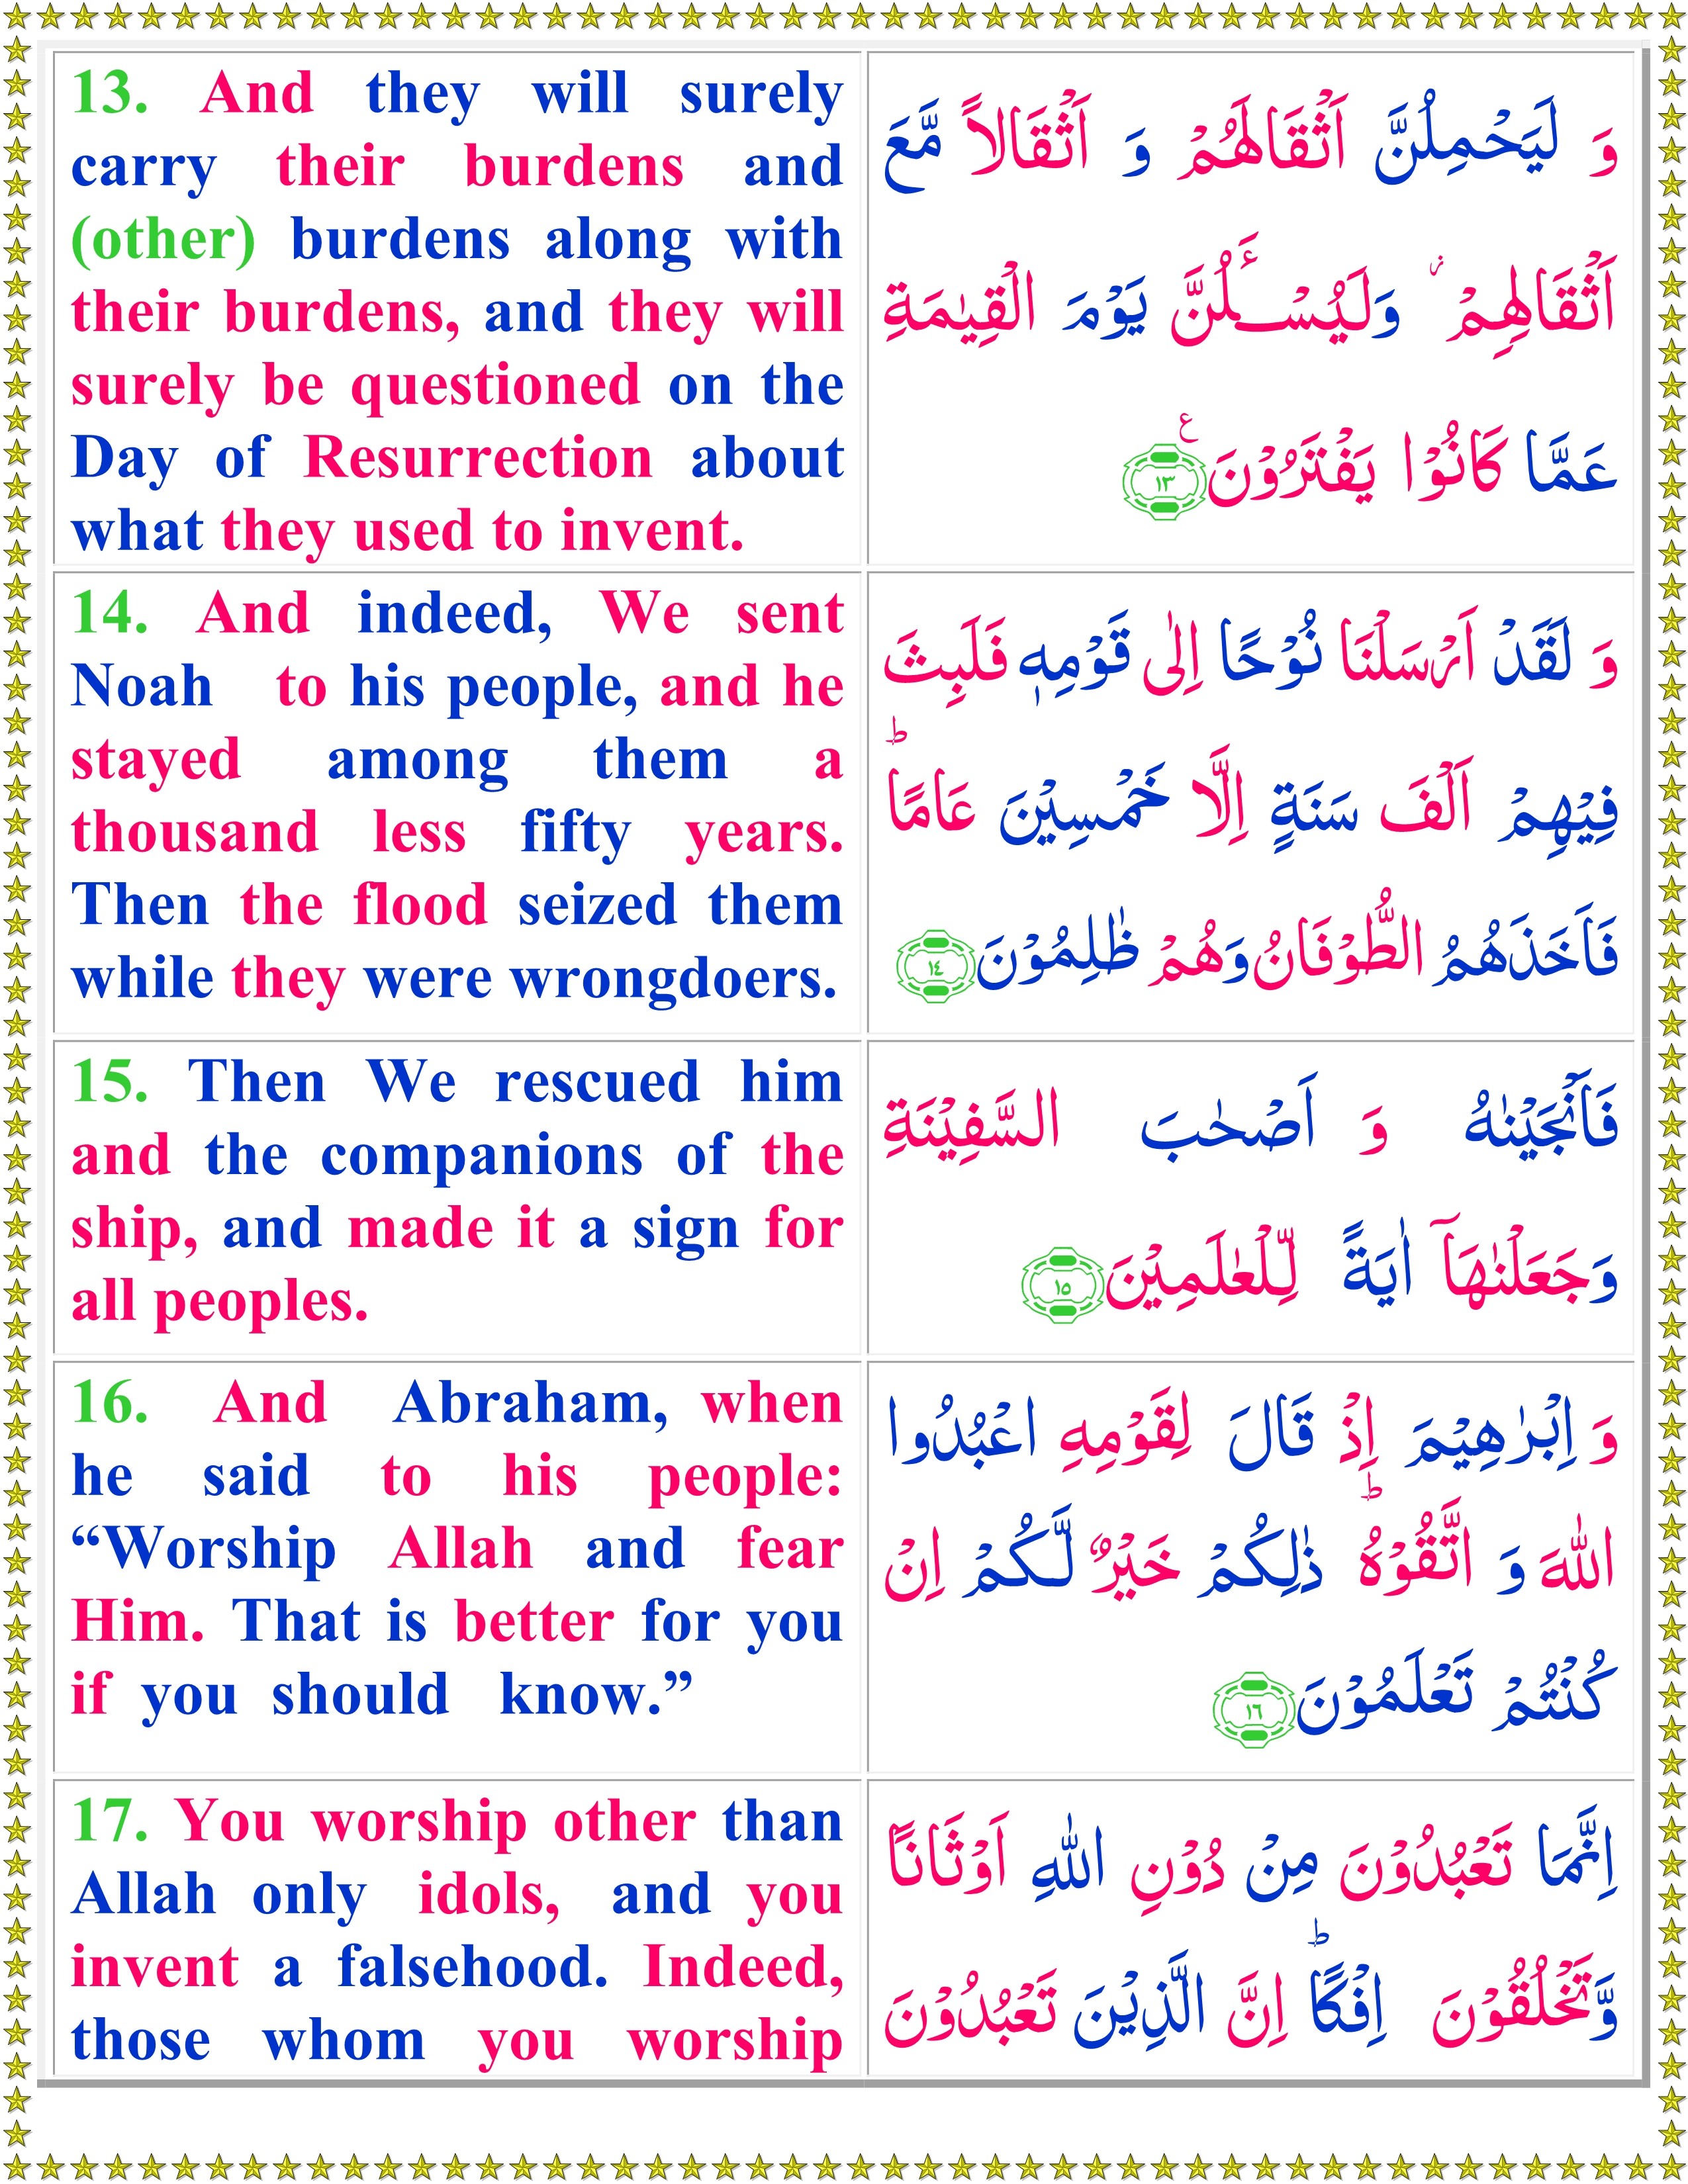 13. And they will surely
carry their burdens and
(other) burdens along with
their burdens, and they will
surely be questioned on the
Day of Resurrection about
what they used to invent.
وَ لَيَحْمِلُنَّ اَثْقَالَهُمْ وَ اَثْقَالاً مَّعَ
اَثْقَالِهِمْ ؗ وَلَيُسْـَٔلُنَّ يَوْمَ الْقِيٰمَةِ
عَمَّا كَانُوْا يَفْتَرُوْنَ ۧ ١٣
14. And indeed, We sent
Noah to his people, and he
stayed among them a
thousand less fifty years.
Then the flood seized them
while they were wrongdoers.
وَ لَقَدْ اَرْسَلْنَا نُوْحًا اِلٰى قَوْمِهٖ فَلَبِثَ
فِيْهِمْ اَلْفَ سَنَةٍ اِلَّا خَمْسِيْنَ عَامًا ؕ
فَاَخَذَهُمُ الطُّوْفَانُ وَهُمْ ظٰلِمُوْنَ ١٤
15. Then We rescued him
and the companions of the
ship, and made it a sign for
all peoples.
فَاَنْجَيْنٰهُ وَ اَصْحٰبَ السَّفِيْنَةِ
وَجَعَلْنٰهَاۤ اٰيَةً لِّلْعٰلَمِيْنَ ١٥
16. And Abraham, when
he said to his people:
“Worship Allah and fear
Him. That is better for you
if you should know.”
وَ اِبْرٰهِيْمَ اِذْ قَالَ لِقَوْمِهِ اعْبُدُوا
اللّٰهَ وَ اتَّقُوْهُ ؕ ذٰلِكُمْ خَيْرٌ لَّكُمْ اِنْ
كُنْتُمْ تَعْلَمُوْنَ ١٦
17. You worship other than
Allah only idols, and you
invent a falsehood. Indeed,
those whom you worship
اِنَّمَا تَعْبُدُوْنَ مِنْ دُوْنِ اللّٰهِ اَوْثَانًا
وَّتَخْلُقُوْنَ اِفْكًا ؕ اِنَّ الَّذِيْنَ تَعْبُدُوْنَ